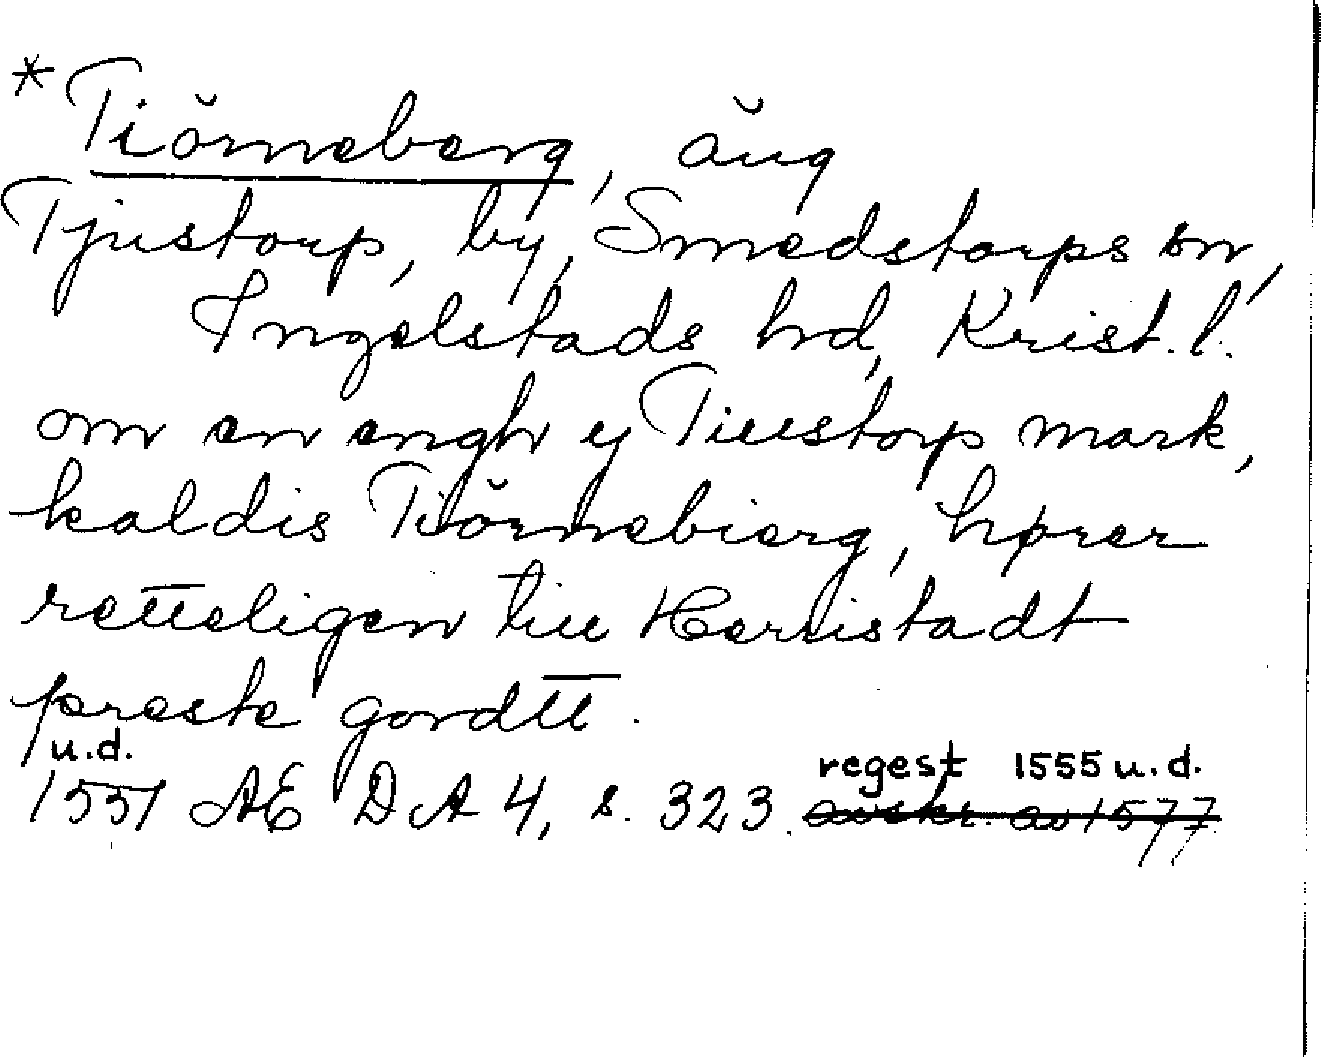 * Tiörneberg, äng
Tjustorp, by, Smedstorps sn,
Ingelstads hrd, Krist. l.
om en engh y Tiustorp mark,
kaldis Tiörnebierg, hører
retteligen till Herristadt
preste gordtt.
u.d. regest 1555 u.d.
1551 AE D A 4, s. 323. avskr. av 1577